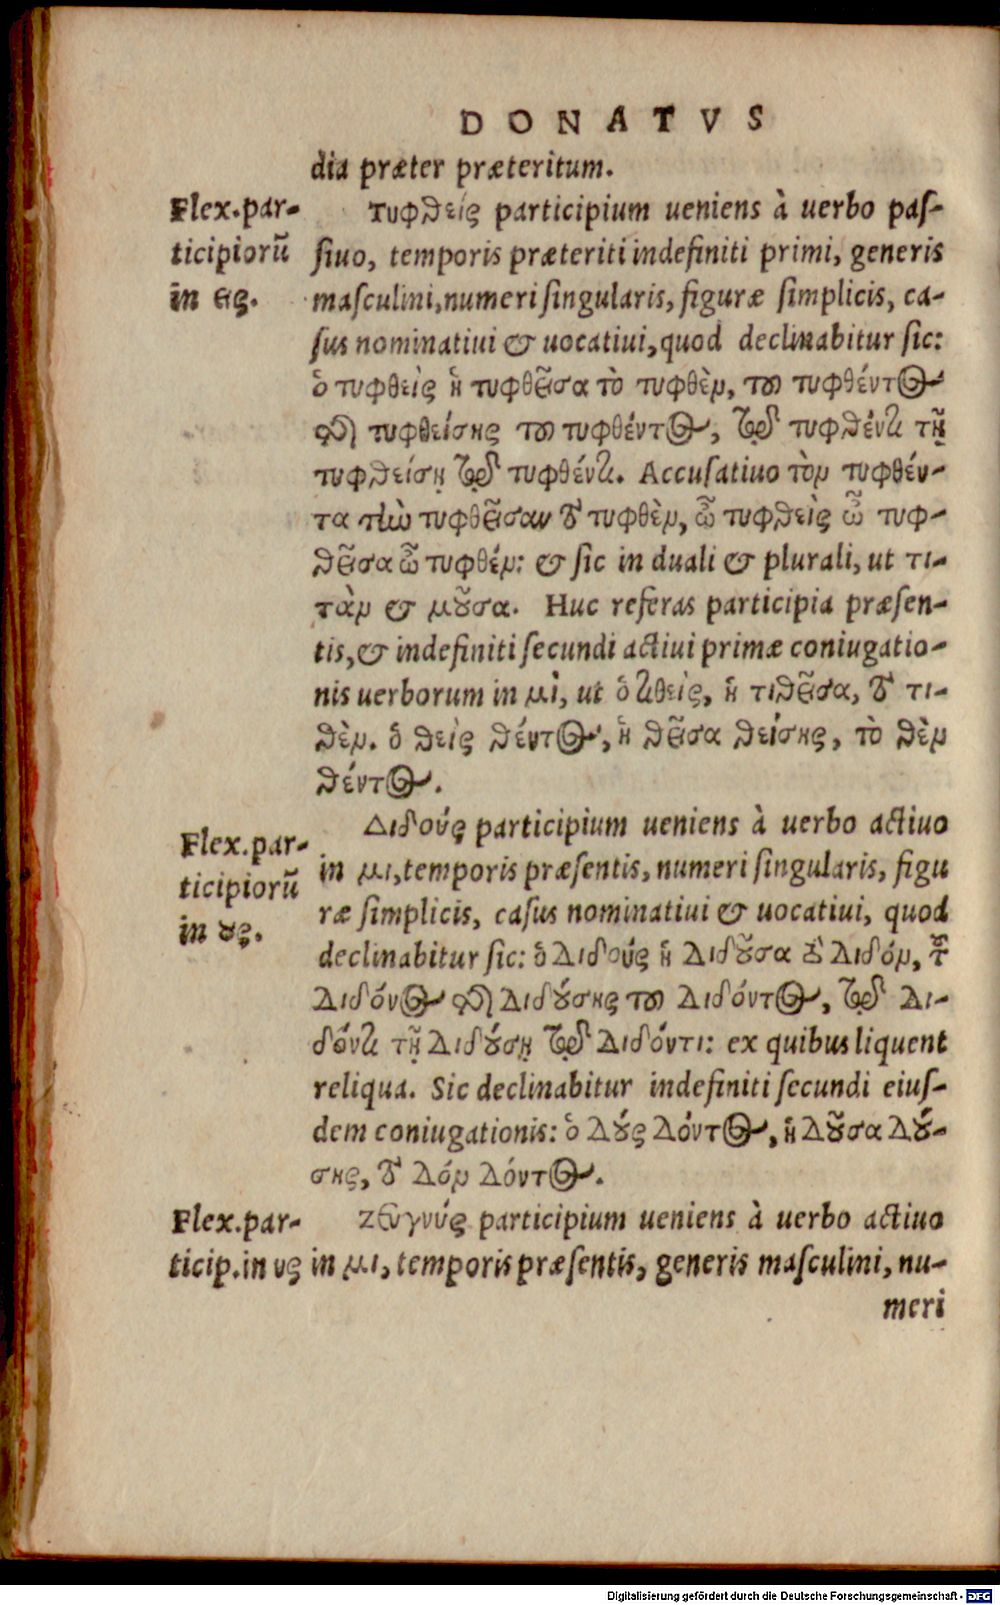 DONATVS
dia præter præteritum.
Flex.par-
ticipiorũ
in εις.
τυφθείς participium ueniens à uerbo pas-
siuo, temporis præteriti indefiniti primi, generis
masculini, numeri singularis, figuræ simplicis, ca-
sus nominatiui & uocatiui, quod declinabitur sic:
ὁ τυφθεὶς ἡ τυφθεῖσα τὸ τυφθὲν, του τυφθέντος
της τυφθείσης του τυφθέντος, τῷ τυφθέντι τῇ
τυφθείσῃ τῷ τυφθέντι. Accusatiuo τὸν τυφθέν-
τα τὴν τυφθεῖσαν τὸ τυφθὲν, ὦ τυφθεὶς ὦ τυφ-
θεῖσα ὦ τυφθέν: & sic in duali & plurali, ut τι-
τὰν & μοῦσα. Huc referas participia præsen-
tis, & indefiniti secundi actiui primæ coniugatio-
nis uerborum in μι, ut ὁ τιθεὶς, ἡ τιθεῖσα, τὸ τι-
θὲν. ὁ θεὶς θέντος, ἡ θεῖσα θείσης, τὸ θὲν
θέντος.
Flex.par-
ticipiorũ
in ους.
Διδούς participium ueniens à uerbo actiuo
in μι, temporis præsentis, numeri singularis, figu
ræ simplicis, casus nominatiui & uocatiui, quod
declinabitur sic: ὁ διδούς ἡ διδοῦσα τὸ διδόν, τοῦ
διδόντος της διδούσης του διδόντος, τῷ δι-
δόντι τῇ διδούσῃ τῷ διδόντι: ex quibus liquent
reliqua. Sic declinabitur indefiniti secundi eius-
dem coniugationis: ὁ δούς δόντος, ἡ δοῦσα δού-
σης, τὸ δόν δόντος.
Flex.par-
ticip.in υς
ζευγνύς participium ueniens à uerbo actiuo
in μι, temporis præsentis, generis masculini, nu-
meri
Digitalisierung gefördert durch die Deutsche Forschungsgemeinschaft - DFG